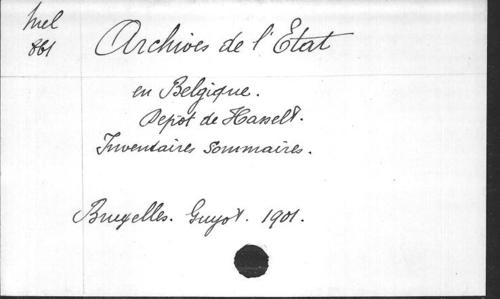 Mel
861
Archives de l'Etat
en Belgique.
Depot de Hasselt.
Inventaires sommaires.
Bruxelles. Guyot. 1901.